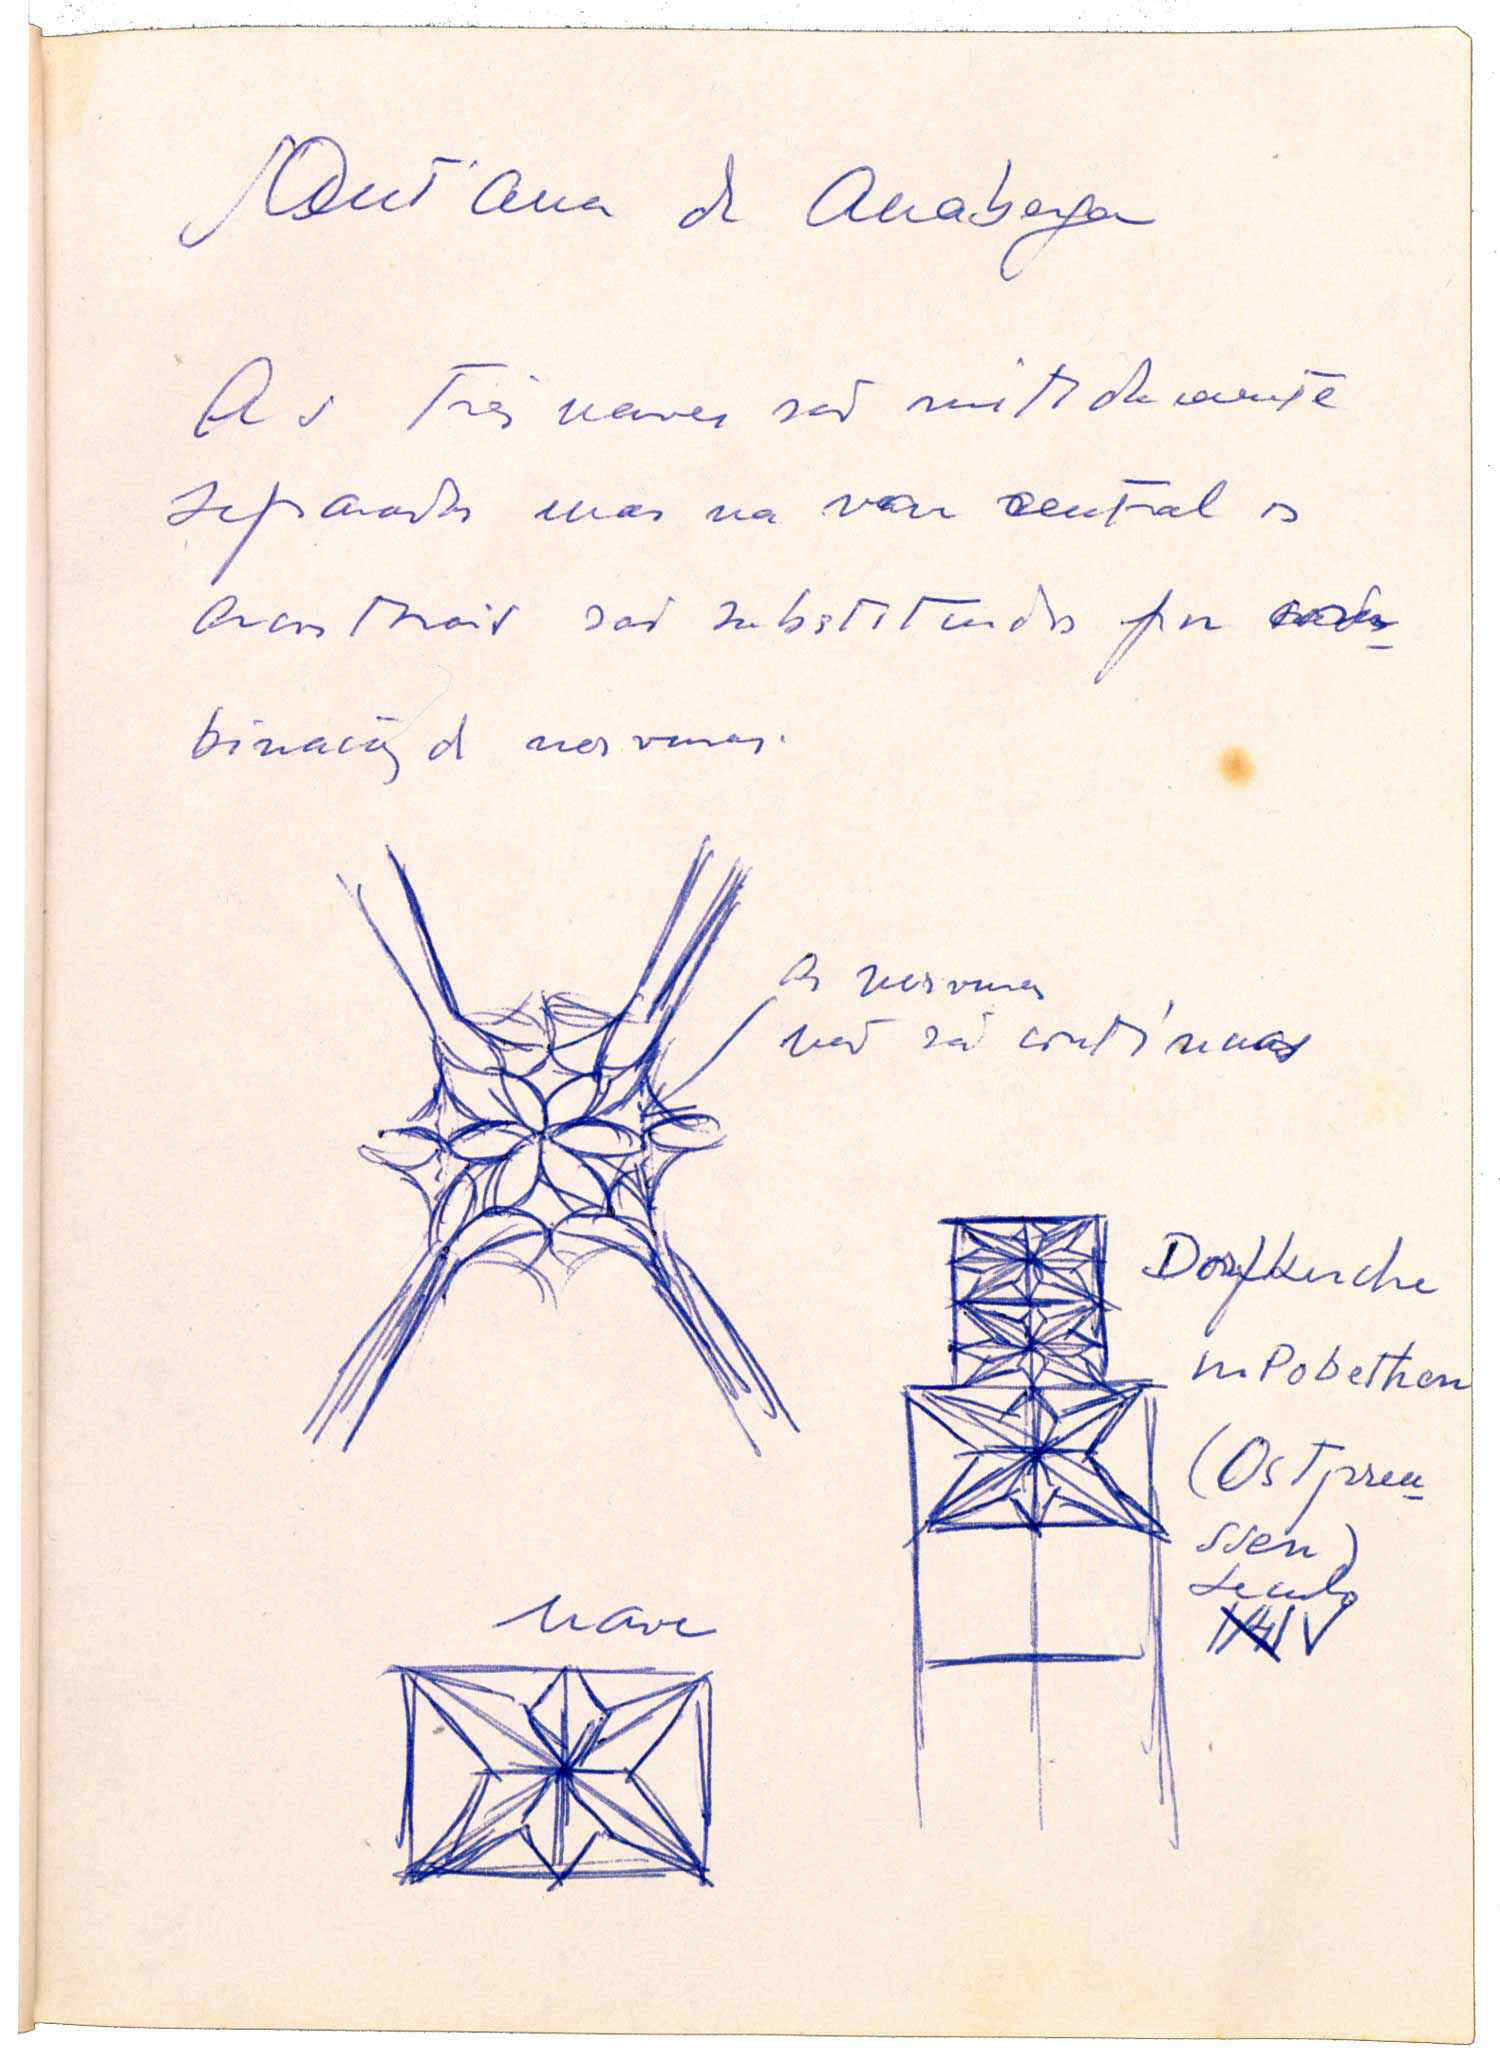 Sant'Ana de Anaberga
As três naves são nitidamente
separadas mas na nave central os
arcos torais são substituidos por com-
binação de nervuras.
As nervuras
não são contínuas
Dorfkirche
in Pobethen
(Ostpreu-
ssen)
seculo
XIV
nave